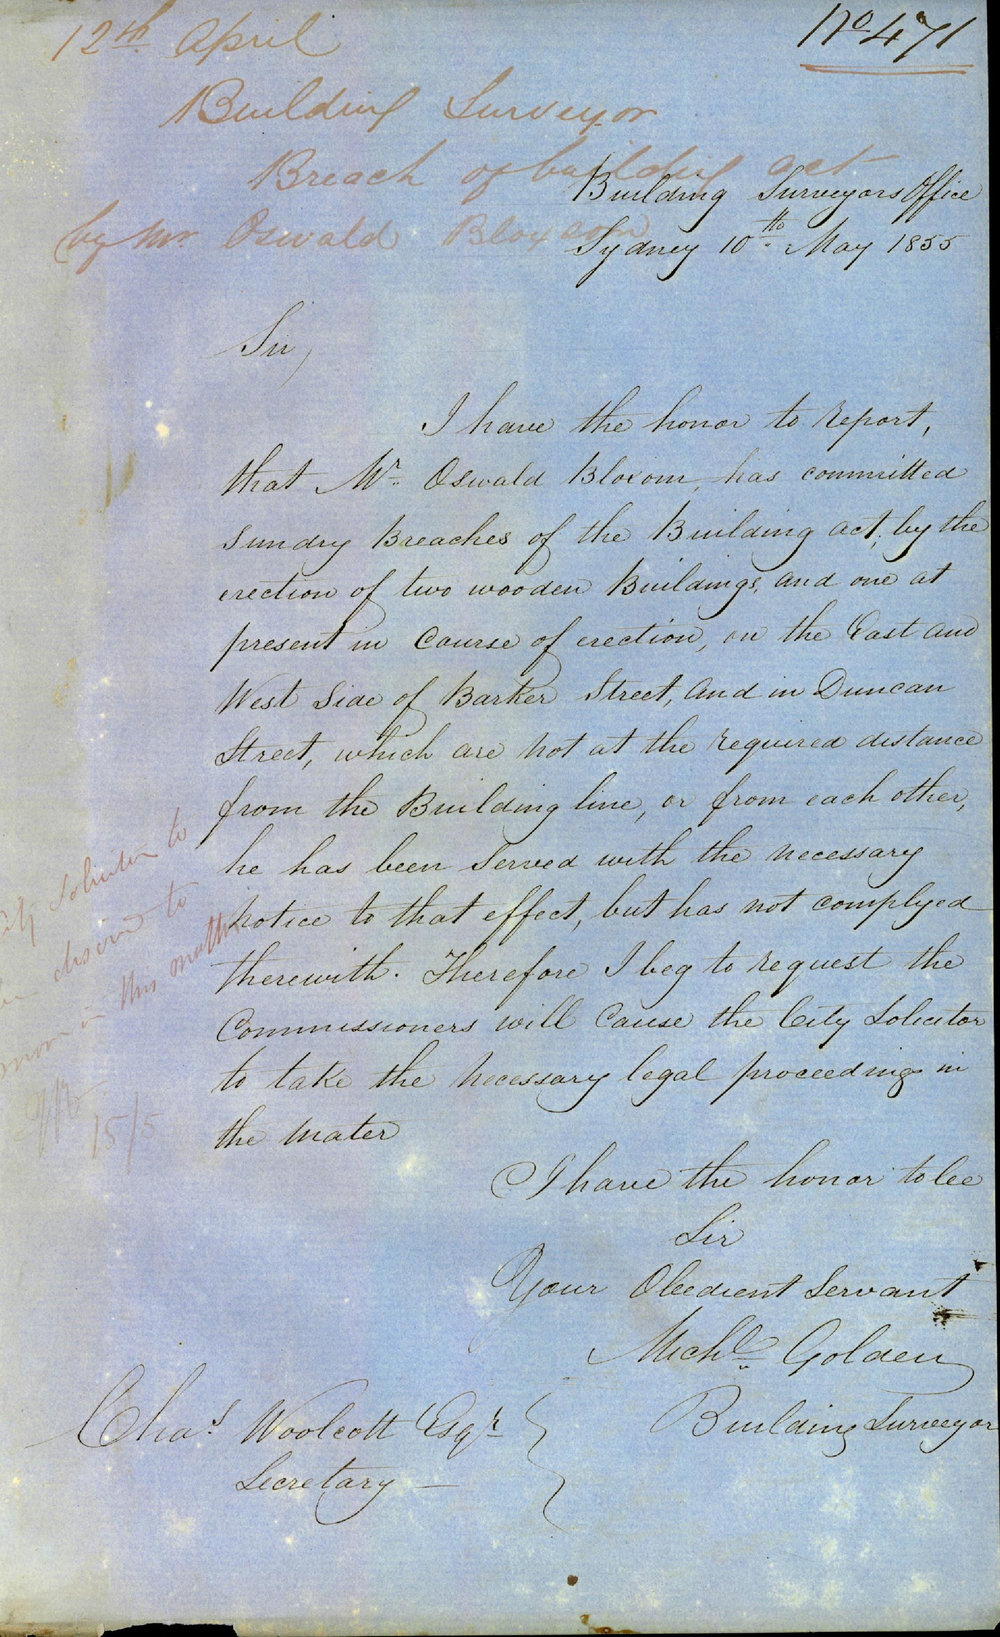 No 471
12th April
Building Surveyor
Breach of building act
by Mr Oswald Bloxsom
Building Surveyors Office
Sydney 10th May 1855
Sir,
I have the honor to report,
that Mr. Oswald Bloxom, has committed
Sundry Breaches of the Building act, by the
erection of two wooden Buildings, and one at
present in Course of erection, on the East and
West Side of Barker Street, and in Duncan
Street, which are not at the required distance
from the Building line, or from each other,
he has been Served with the necessary
notice to that effect, but has not complyed
therewith. Therefore I beg to request the
Commissioners will Cause the City Solicitor
to take the necessary legal proceedings in
the mater
I have the honor to be
Sir
Your Obedient Servant
Michl Golden
Building Surveyor
Chas Woolcott Esqr
Secretary
Solicitor to
to
in this matter
15/5